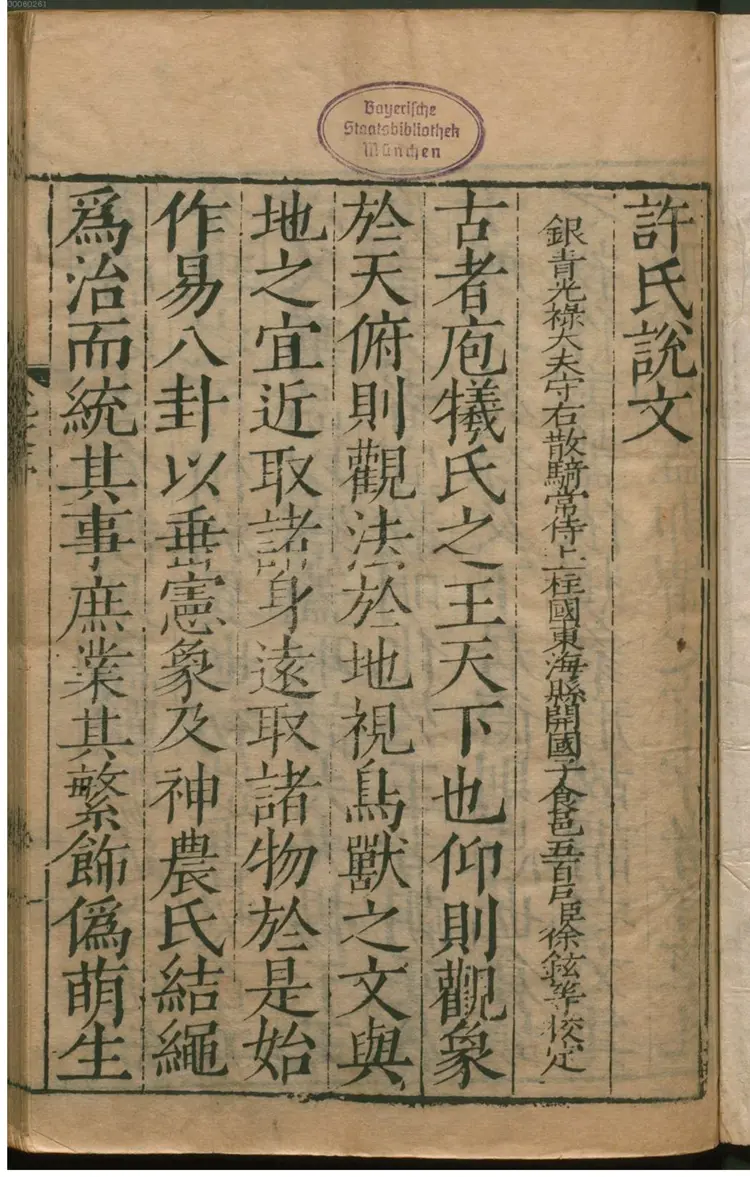 00060261
Bayerische
Staatsbibliothek
München
許氏說文
銀青光祿大夫守右散騎常侍上柱國東海縣開國子食邑五百戶臣徐鉉等校定
古者庖犧氏之王天下也仰則觀象
於天俯則觀法於地視鳥獸之文與
地之宜近取諸身遠取諸物於是始
作易八卦以垂憲象及神農氏結繩
爲治而統其事庶業其繁飾僞萌生